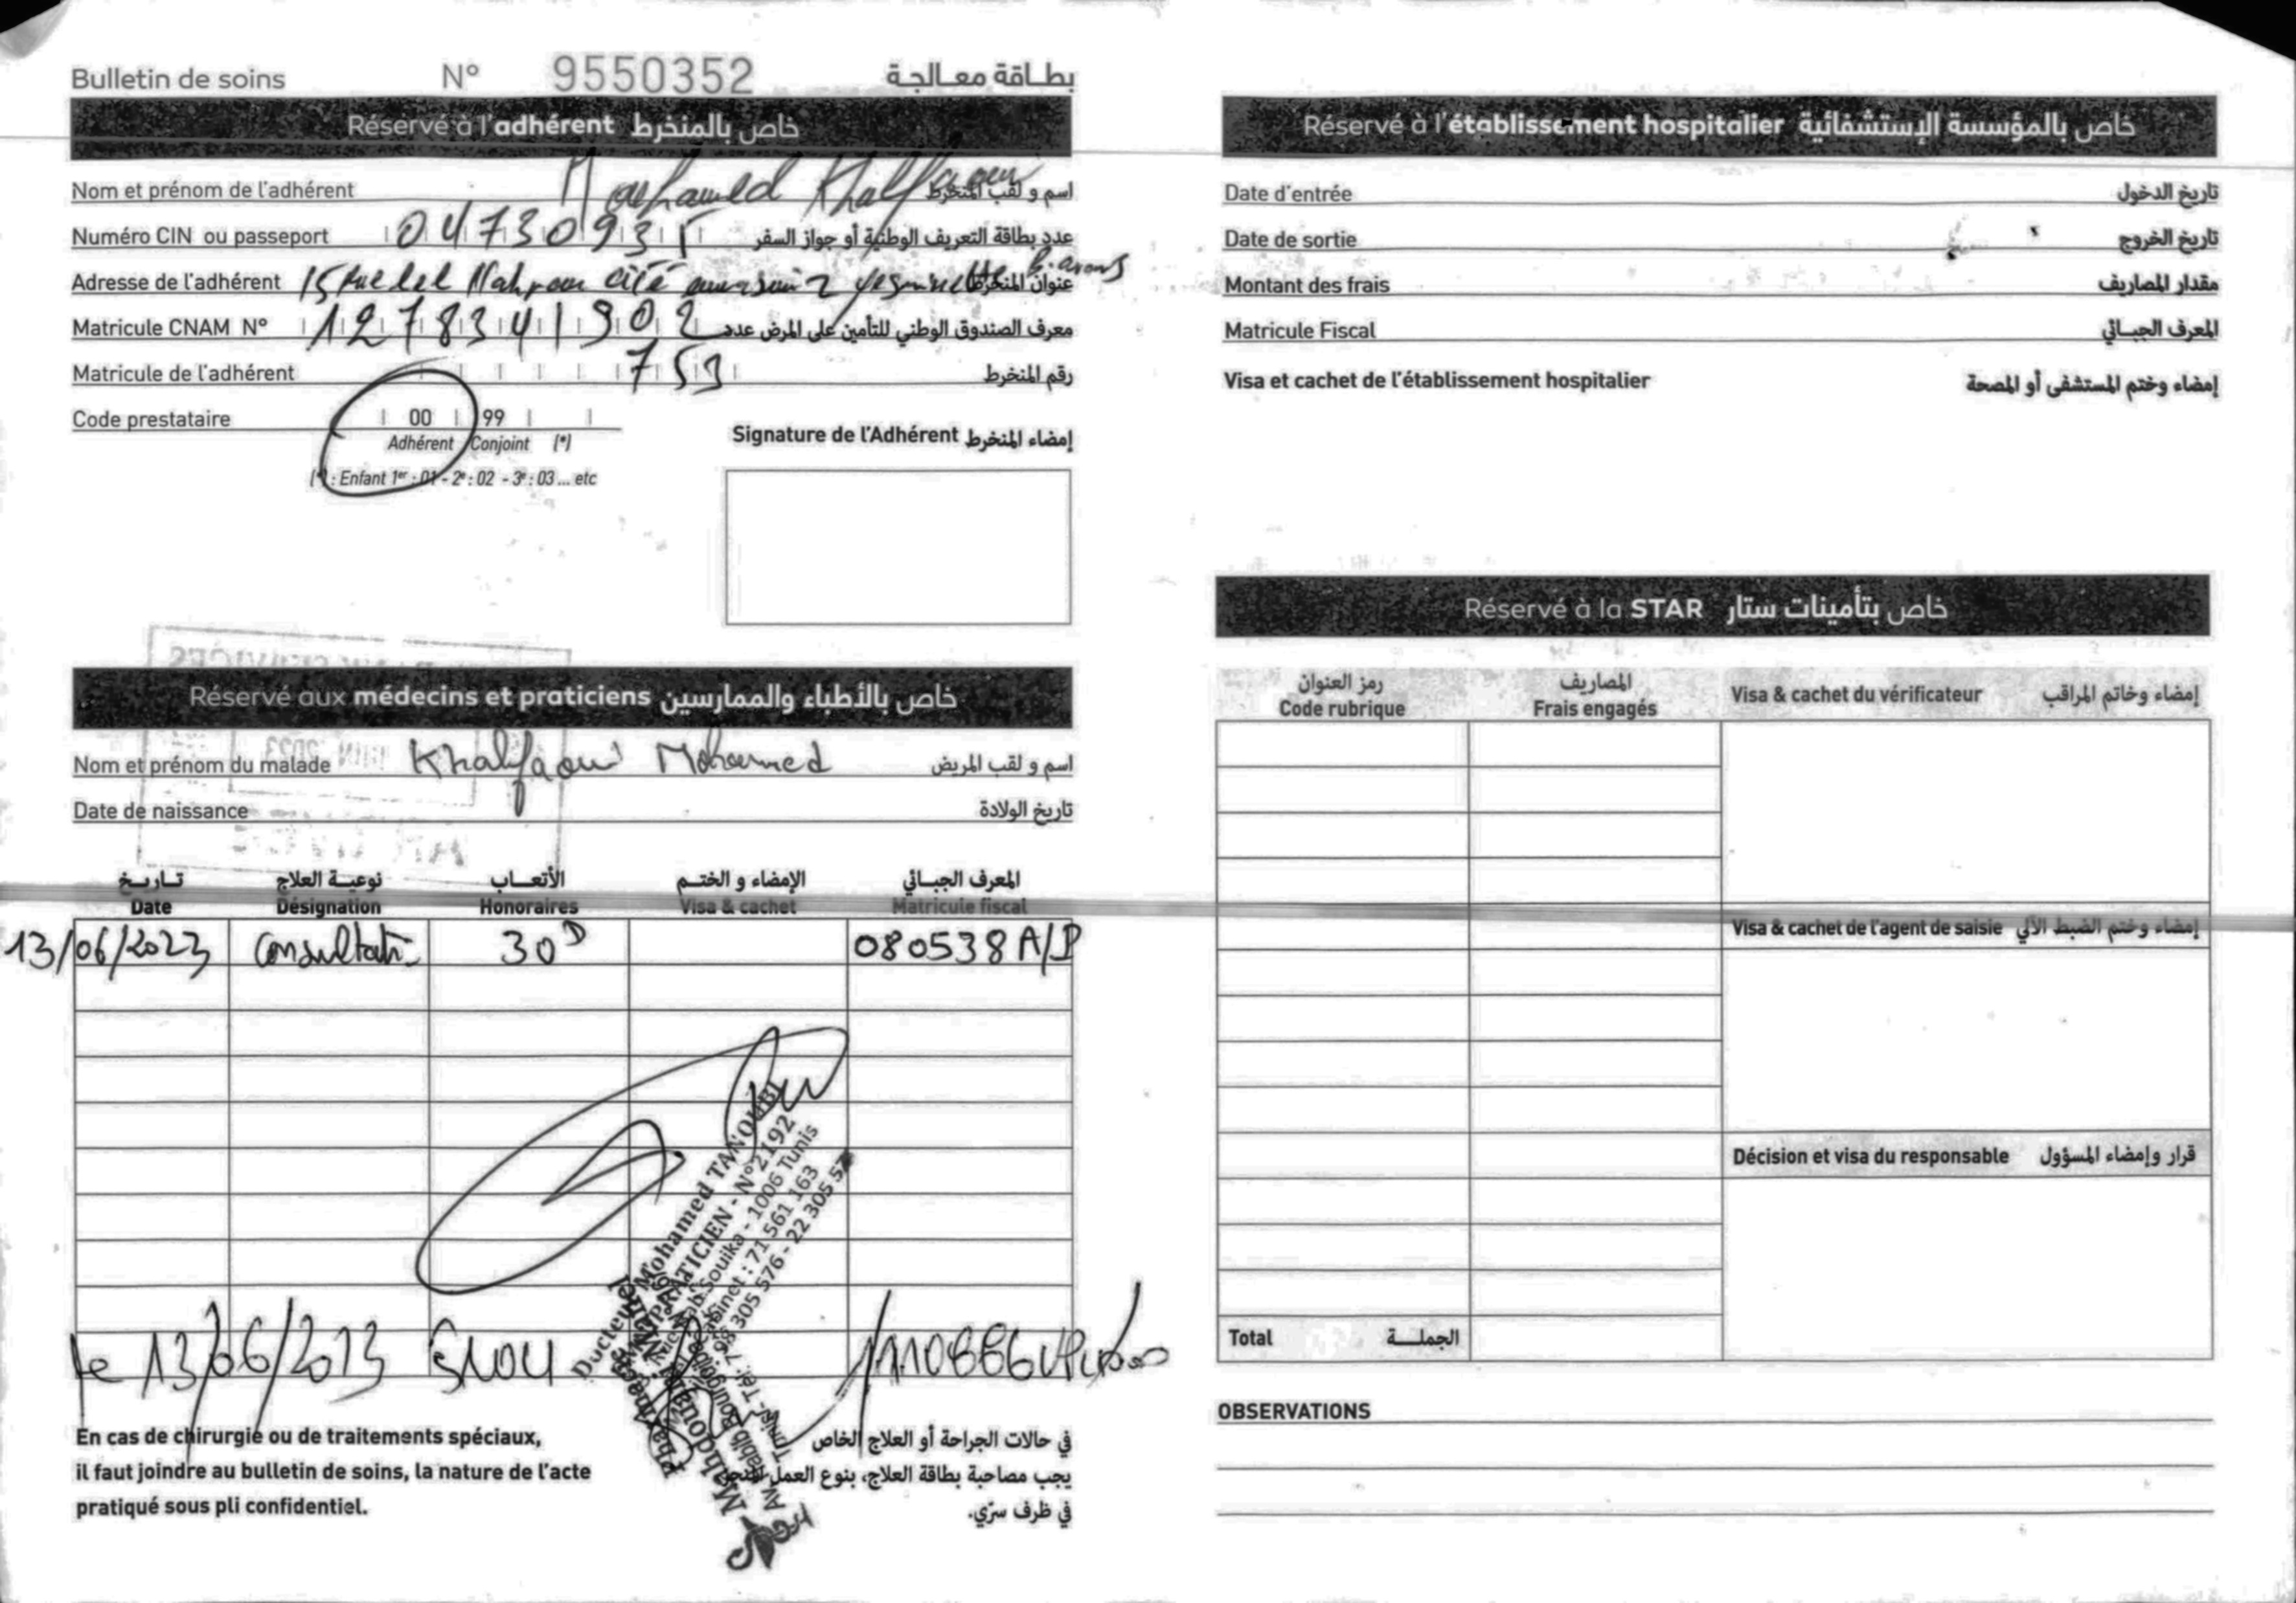 Bulletin de soins N° 9550352 بطاقة معالجة
Réservé à l'adhérent خاص بالمنخرط
Nom et prénom de l'adhérent Mohamed Khalfaoui اسم و لقب المنخرط
Numéro CIN ou passeport 0473093 عدد بطاقة التعريف الوطنية أو جواز السفر
Adresse de l'adhérent 15 Rue cité عنوان المنخرط
Matricule CNAM N° 1278341902 معرف الصندوق الوطني للتأمين على المرض عدد
Matricule de l'adhérent 753 رقم المنخرط
Code prestataire 00 99
Adhérent Conjoint (*)
(*) : Enfant 1er : 01 - 2e : 02 - 3e : 03 ... etc
Signature de l'Adhérent إمضاء المنخرط
Réservé aux médecins et praticiens خاص بالأطباء والممارسين
Nom et prénom du malade Khalfaoui Mohamed اسم و لقب المريض
Date de naissance تاريخ الولادة
تاريخ نوعية العلاج الأتعاب الإمضاء و الختم المعرف الجبائي
Date Désignation Honoraires Visa & cachet Matricule fiscal
13/06/2023 Consultati 30D 080538 A/P
Docteur Mohamed TANOUBI
PRATICIEN - N° 2192
Souika - 1006 Tunis
Cabinet : 71 561 163
98 305 576 - 22 305 576
le 13/06/2023
En cas de chirurgie ou de traitements spéciaux,
il faut joindre au bulletin de soins, la nature de l'acte
pratiqué sous pli confidentiel.
في حالات الجراحة أو العلاج الخاص
يجب مصاحبة بطاقة العلاج، بنوع العمل
في ظرف سرّي.
Réservé à l'établissement hospitalier خاص بالمؤسسة الإستشفائية
Date d'entrée تاريخ الدخول
Date de sortie تاريخ الخروج
Montant des frais مقدار المصاريف
Matricule Fiscal المعرف الجبائي
Visa et cachet de l'établissement hospitalier إمضاء وختم المستشفى أو المصحة
Réservé à la STAR خاص بتأمينات ستار
رمز العنوان المصاريف
Code rubrique Frais engagés Visa & cachet du vérificateur إمضاء وخاتم المراقب
Visa & cachet de l'agent de saisie إمضاء وختم الضبط الآلي
Décision et visa du responsable قرار وإمضاء المسؤول
Total الجملة
OBSERVATIONS